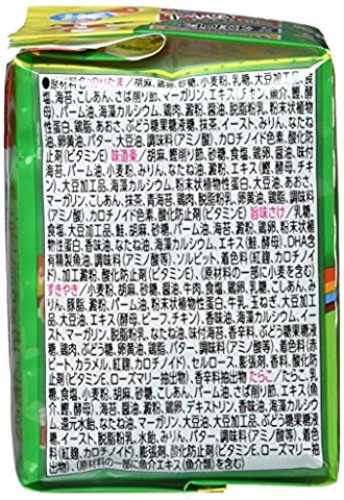 ■原材料名 のりたま/胡麻、鶏卵、砂糖、小麦粉、乳糖、大豆加工品、食
塩、海苔、こしあん、さば削り節、マーガリン、エキス(チキン、魚介、鰹、酵
母)、パーム油、海藻カルシウム、鶏肉、澱粉、醤油、脱脂粉乳、粉末状植物
性蛋白、鶏脂、あおさ、ぶどう糖果糖液糖、抹茶、イースト、みりん、なたね
油、卵黄油、バター、大豆油、調味料(アミノ酸)、カロチノイド色素、酸化防
止剤(ビタミンE) 味道楽/胡麻、鰹削り節、砂糖、食塩、鶏卵、醤油、味付
海苔、パーム油、小麦粉、みりん、なたね油、澱粉、エキス(鰹、酵母、チキ
ン)、大豆加工品、海藻カルシウム、粉末状植物性蛋白、大豆油、あおさ、
マーガリン、こしあん、抹茶、青海苔、鶏肉、鶏脂、卵黄油、調味料
(アミノ酸)、カロチノイド色素、酸化防止剤(ビタミンE) 旨味さけ/乳糖、
食塩、大豆加工品、鮭、胡麻、砂糖、パーム油、こしあん、粉末状植
物性蛋白、香味油、なたね油、海藻カルシウム、エキス(鮭、酵母)、DHA含
有精製魚油、調味料(アミノ酸等)、ソルビット、着色料(紅麹、カロチノイ
ド)、加工澱粉、酸化防止剤(ビタミンE)、(原材料の一部に小麦を含む)
すきやき/小麦粉、胡麻、砂糖、醤油、牛肉、食塩、鶏卵、乳糖、玉ねぎ、みり
ん、豚脂、澱粉、パーム油、粉末状植物性蛋白、牛乳、玉ねぎ、大豆加工
品、大豆油、エキス(酵母、ビーフ、チキン)、香味油、海藻カルシウム、イー
スト、マーガリン、脱脂粉乳、なたね油、味付海苔、香辛料、ぶどう糖果糖液
糖、鶏肉、ぶどう糖、卵黄油、鶏脂、バター、調味料(アミノ酸等)、着色料(
ビート、カラメル、紅麹、カロチノイド)、セルロース、膨張剤、香料、酸化防
止剤(ビタミンE、ローズマリー抽出物)、香辛料抽出物 たらこ/たらこ、乳
糖、食塩、小麦粉、胡麻、砂糖、こしあん、パーム油、さば削り節、エキス(魚
介、鰹、酵母)、海苔、醤油、澱粉、鶏卵、デキストリン、香味油、海藻カルシウ
ム、還元水飴、なたね油、マーガリン、大豆加工品、大豆油、ぶどう糖果糖液
糖、イースト、脱脂粉乳、水飴、みりん、バター、調味料(アミノ酸等)、着色
料(紅麹、カロチノイド)、膨張剤、酸化防止剤(ビタミンE、ローズマリー抽
出物)、(原材料の一部に魚介エキス(魚介類)を含む)